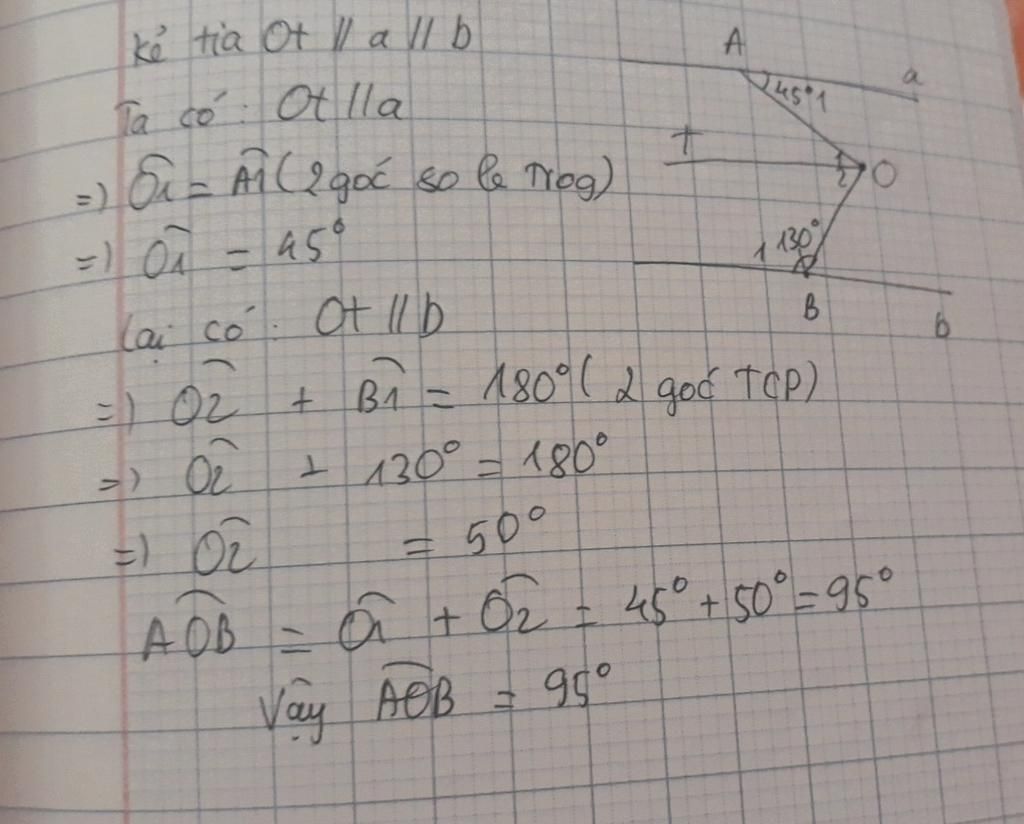 Kẻ tia Ot // a // b
Ta có: Ot // a
=) Ô1 = Â1 (2 góc so le Trog)
=) Ô1 = 45°
Lại có: Ot // b
=) Ô2 + B̂1 = 180° (2 góc TCP)
=) Ô2 + 130° = 180°
=) Ô2 = 50°
AÔB = Ô1 + Ô2 = 45° + 50° = 95°
Vậy AÔB = 95°
A
a
45° 1
t
1
2
O
1 130°
B
b